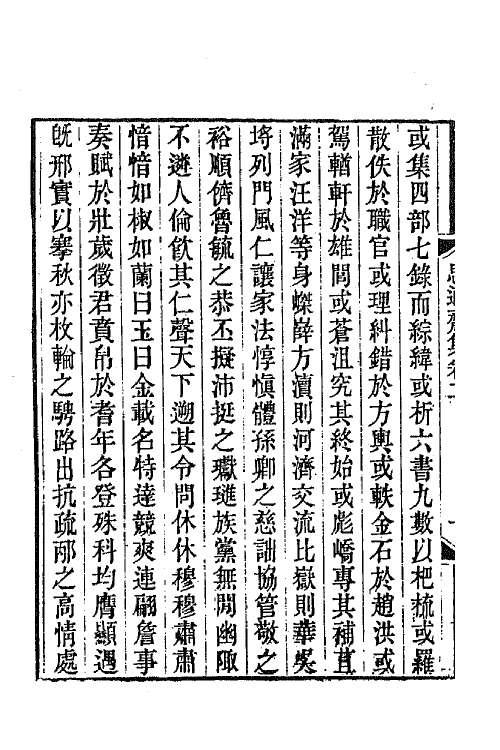 或集四部七錄而綜緯或析六書九數以杷梳或羅
散佚於職官或理糾錯於方輿或軼金石於趙洪或
駕輶軒於雄間或蒼沮究其終始或彪嶠專其補苴
滿家汪洋等身嵥嶭方瀆則河濟交流比嶽則華吳
埒列門風仁讓家法惇慎體孫卿之慈詘協管敬之
裕順儕魯毓之恭丕擬沛挺之瓛璡族黨無閒幽陬
不遴人倫飮其仁聲天下遡其令問休休穆穆肅肅
愔愔如椒如蘭曰玉曰金載名特達競爽連翩詹事
奏賦於壯歲徵君賁帛於耆年各登殊科均膺顯遇
旣邢實以搴秋亦枚輪之騁路出抗疏邴之高情處
思適齋集卷二